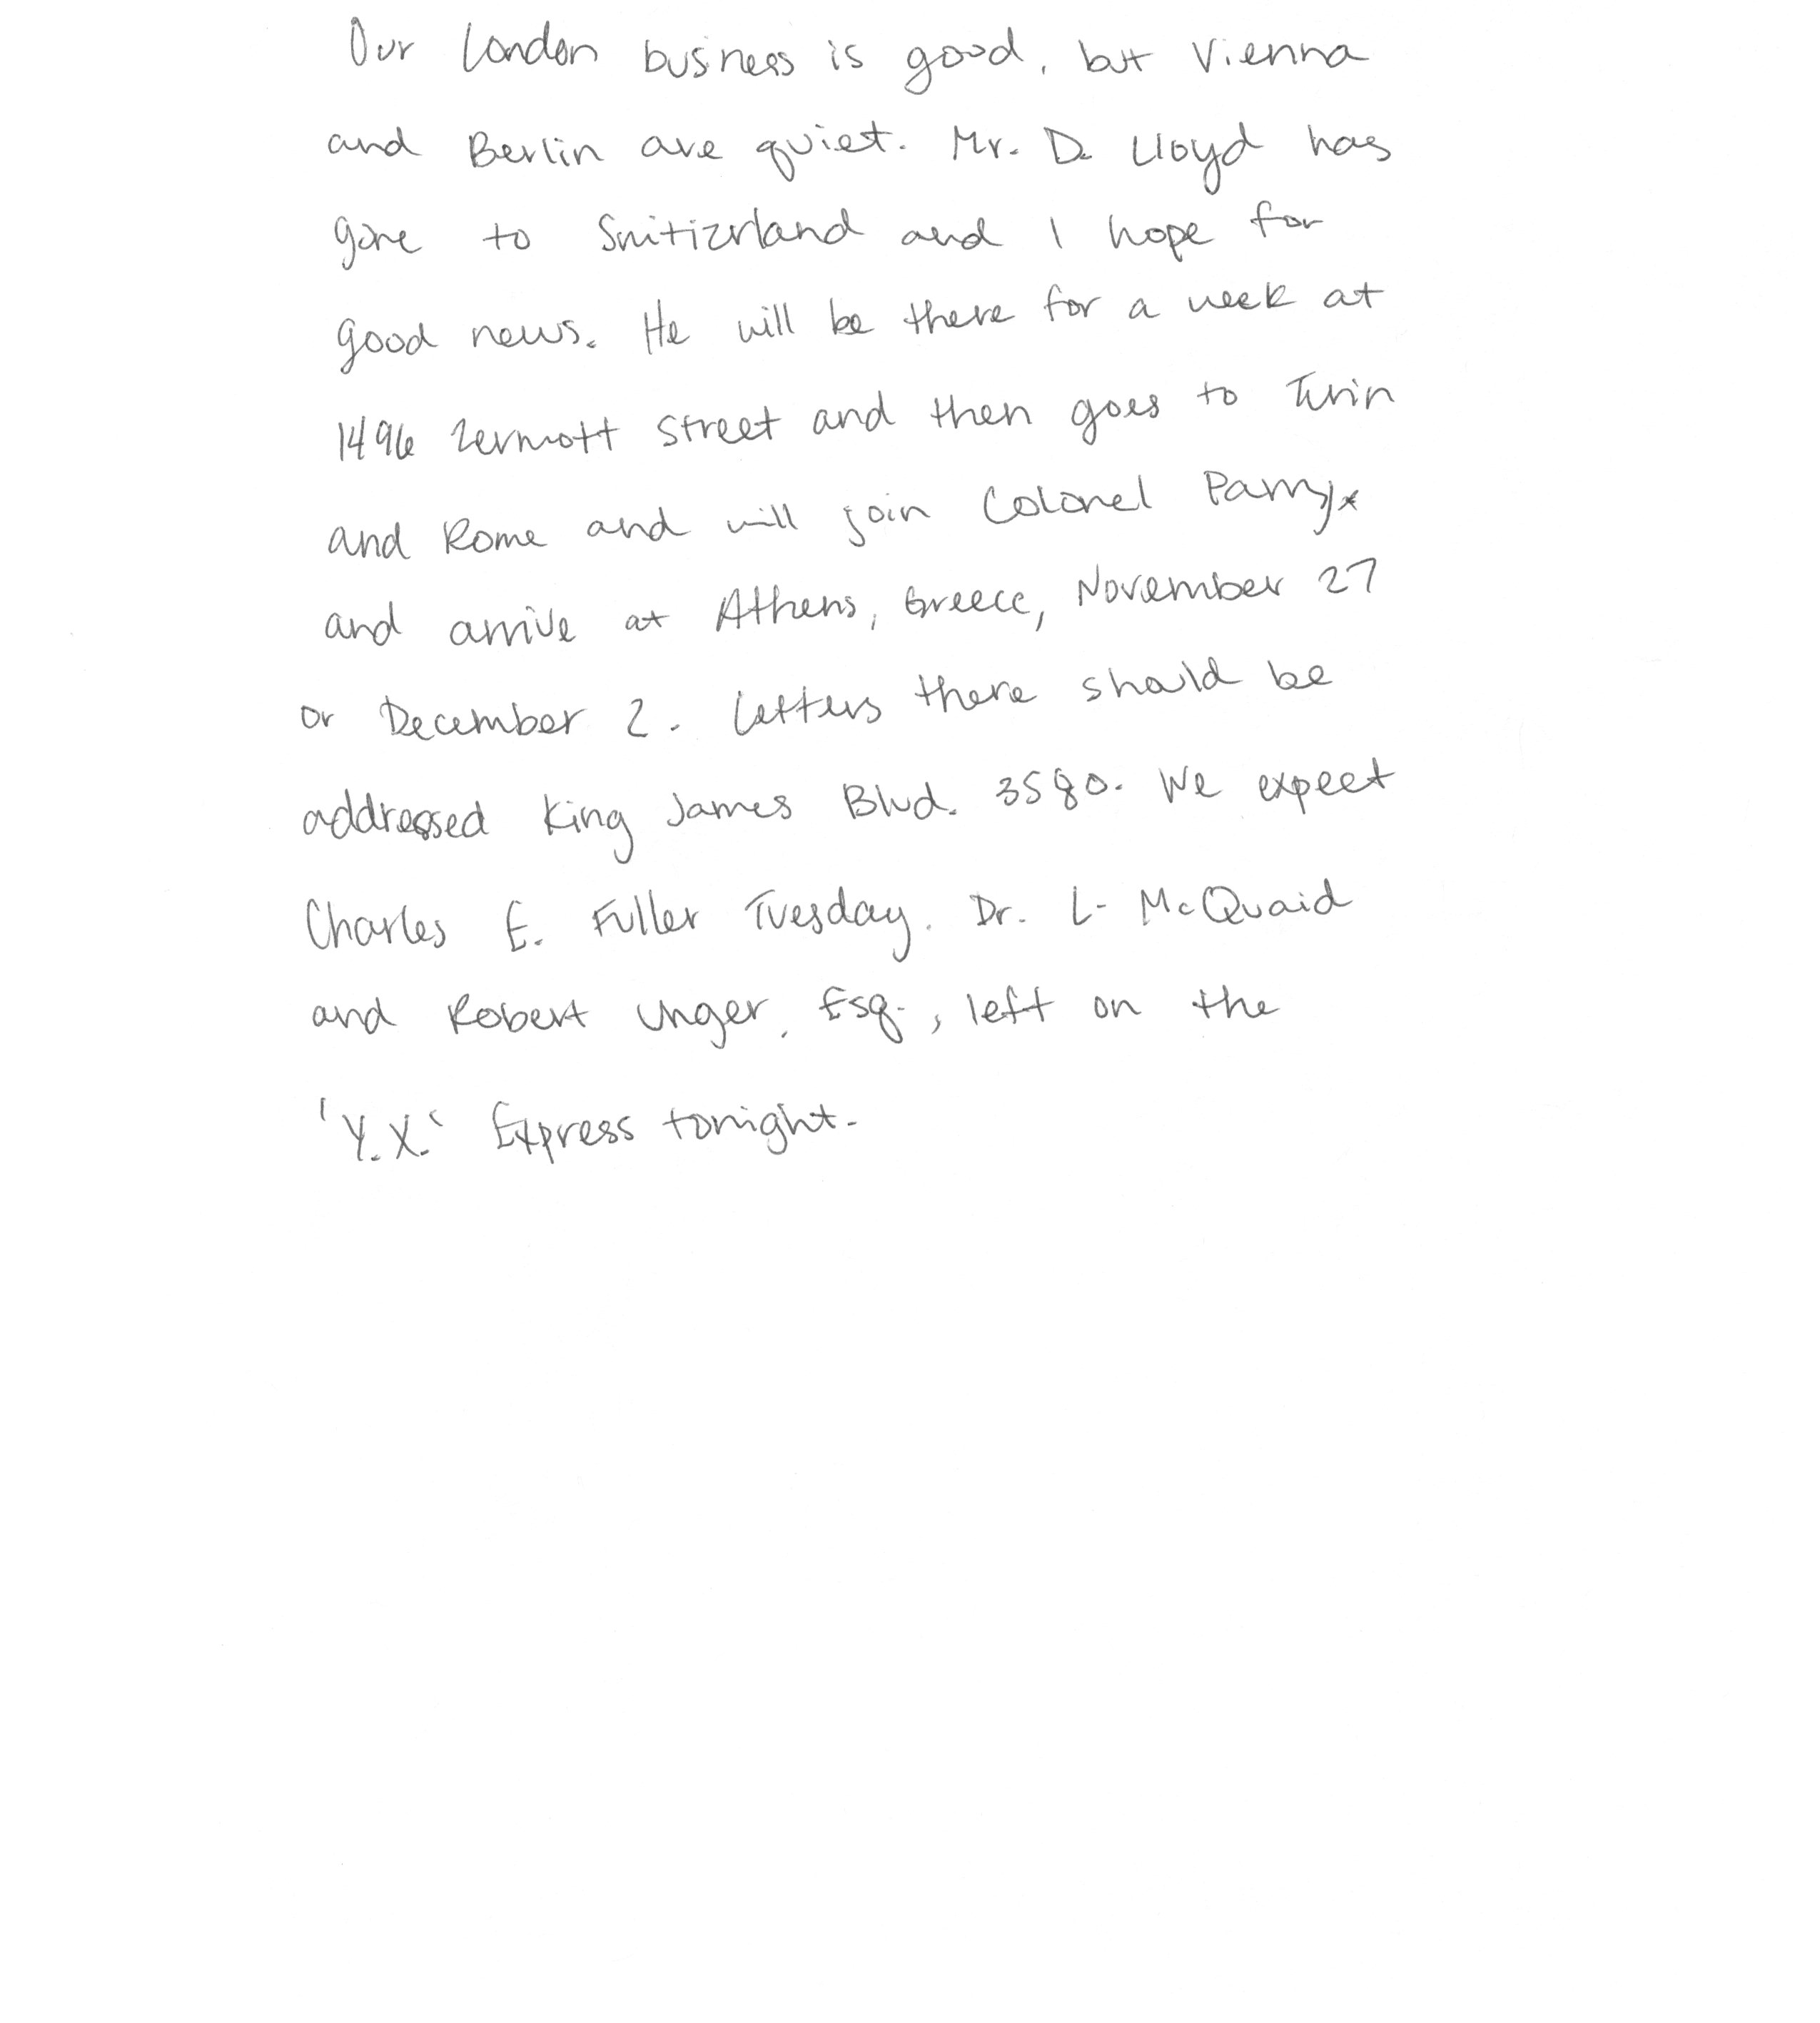 Our London business is good, but Vienna
and Berlin are quiet. Mr. D. Lloyd has
gone to Switizerland and I hope for
good news. He will be there for a week at
1496 Zermott Street and then goes to Turin
and Rome and will join Colonel Parry
and arrive at Athens, Greece, November 27
or December 2. Letters there should be
addressed King James Blvd. 3580. We expect
Charles E. Fuller Tuesday. Dr. L. McQuaid
and Robert Unger, Esq., left on the
'Y.X.' Express tonight.